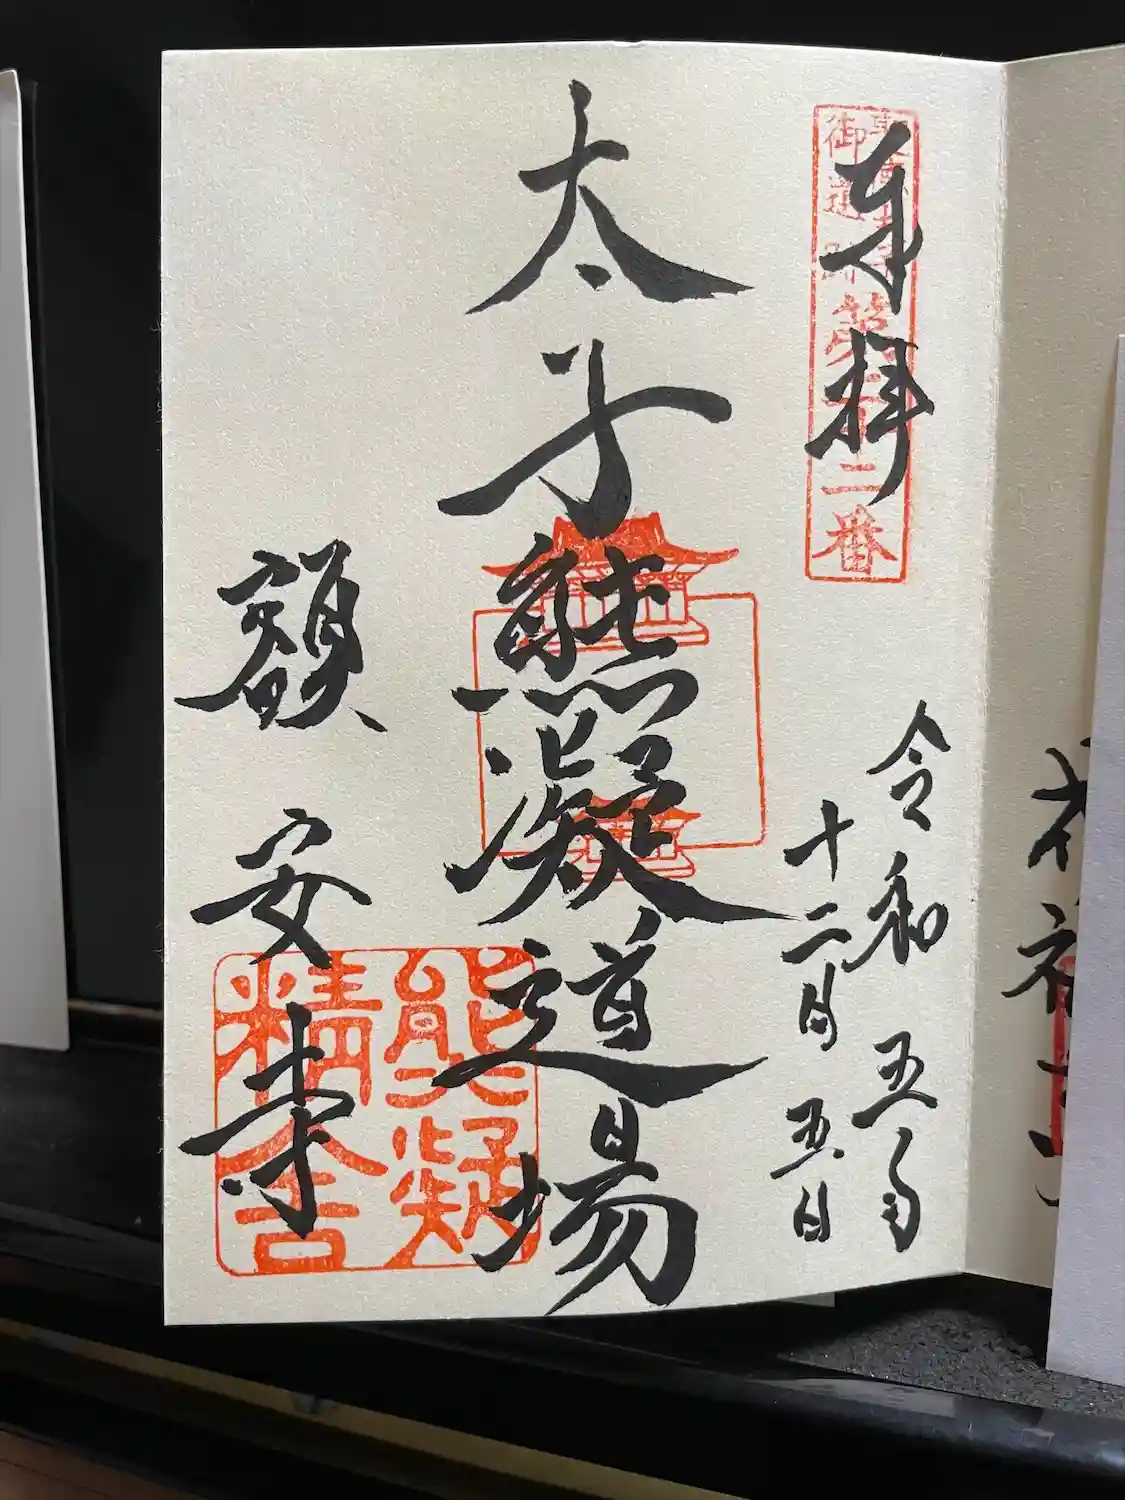 奉拝
聖徳太子
御遺跡第三十二番
令和五年
十二月五日
太子熊凝道場
額安寺
熊凝
精舎